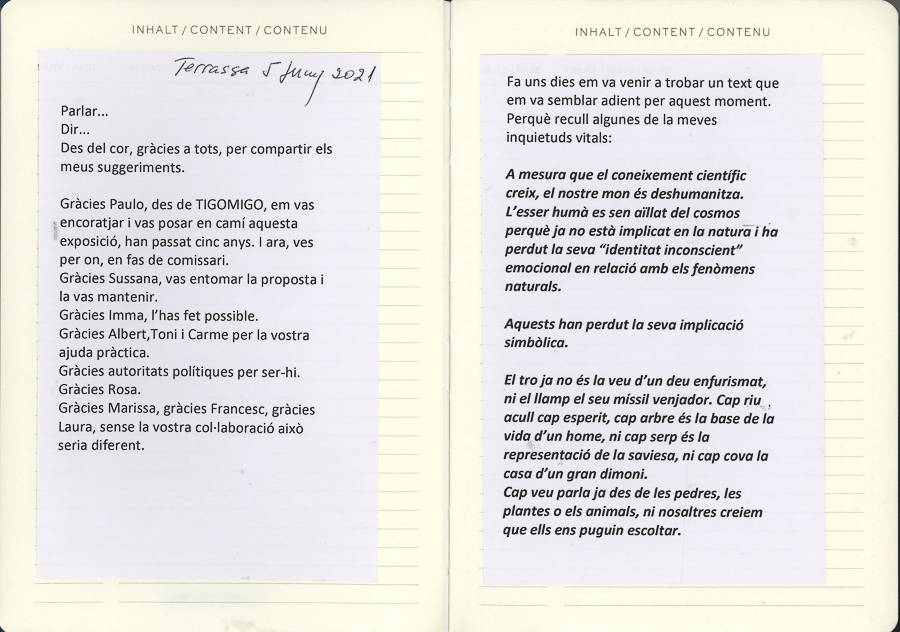 INHALT / CONTENT / CONTENU
Terrassa 5 Juny 2021
Parlar...
Dir...
Des del cor, gràcies a tots, per compartir els
meus suggeriments.
Gràcies Paulo, des de TIGOMIGO, em vas
encoratjar i vas posar en camí aquesta
exposició, han passat cinc anys. I ara, ves
per on, en fas de comissari.
Gràcies Sussana, vas entomar la proposta i
la vas mantenir.
Gràcies Imma, l'has fet possible.
Gràcies Albert,Toni i Carme per la vostra
ajuda pràctica.
Gràcies autoritats polítiques per ser-hi.
Gràcies Rosa.
Gràcies Marissa, gràcies Francesc, gràcies
Laura, sense la vostra col·laboració això
seria diferent.
INHALT / CONTENT / CONTENU
Fa uns dies em va venir a trobar un text que
em va semblar adient per aquest moment.
Perquè recull algunes de la meves
inquietuds vitals:
A mesura que el coneixement científic
creix, el nostre mon és deshumanitza.
L'esser humà es sen aïllat del cosmos
perquè ja no està implicat en la natura i ha
perdut la seva "identitat inconscient"
emocional en relació amb els fenòmens
naturals.
Aquests han perdut la seva implicació
simbòlica.
El tro ja no és la veu d'un deu enfurismat,
ni el llamp el seu míssil venjador. Cap riu
acull cap esperit, cap arbre és la base de la
vida d'un home, ni cap serp és la
representació de la saviesa, ni cap cova la
casa d'un gran dimoni.
Cap veu parla ja des de les pedres, les
plantes o els animals, ni nosaltres creiem
que ells ens puguin escoltar.